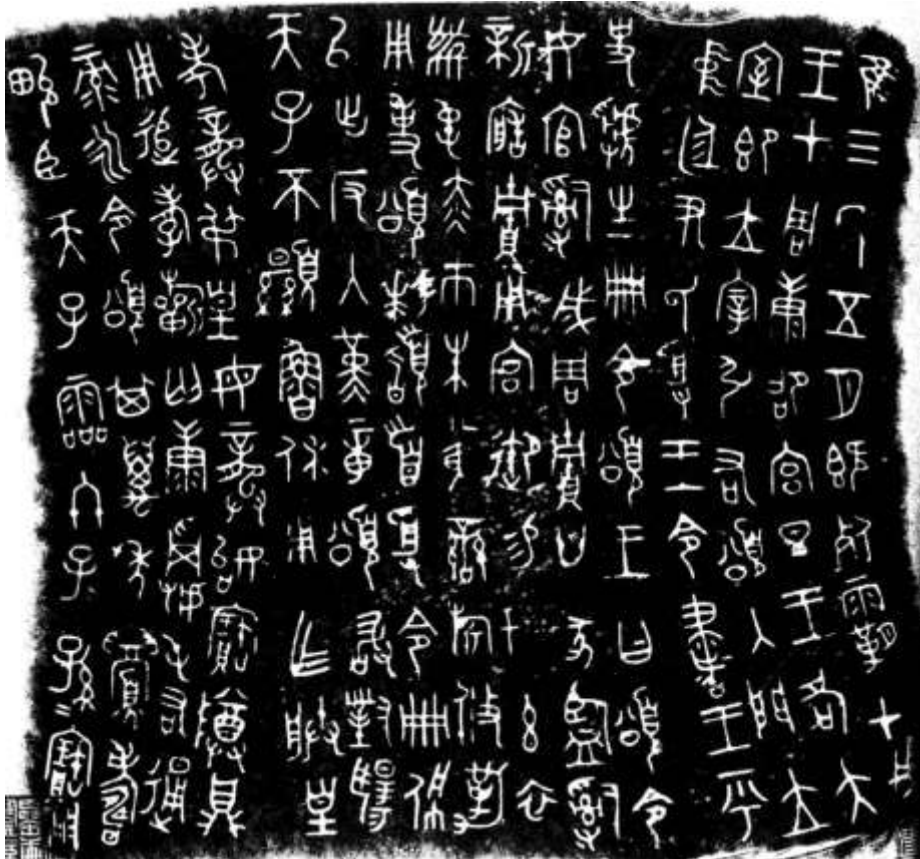 隹三年五月既死霸甲戌
王才周康卲宮旦王各大
室即立宰引右頌入門立
中廷尹氏受王令書王乎
史虢生冊令頌王曰頌令
女官𤔲成周賈廿家監𤔲
新造賈用宮御易女玄衣
黹屯赤巿朱黃䜌旂攸勒
用事頌拜稽首受令冊佩
以出反入堇章頌敢對揚
天子不顯魯休用乍朕皇
考龔弔皇母龔始寶尊鼎
用追孝祈匄康𩛥屯右通
彔永令頌其萬年眉壽
畯臣天子霝冬子孫=寶用